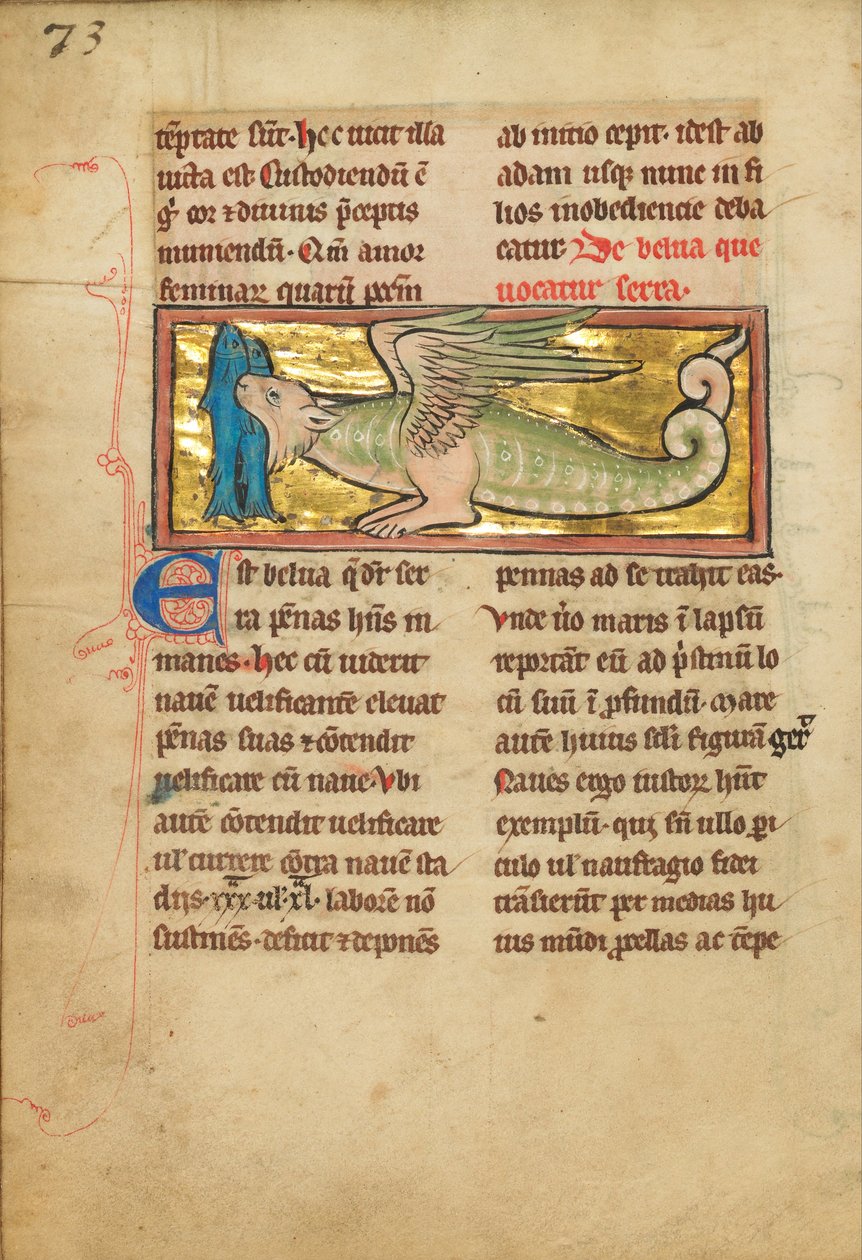 73
tēptate sūt. hec uicit illa
uicta est. Custodiendū ē
gͥ cor ⁊ diuinis p̄ceptis
muniendū. Qm̄ amor
feminaꝝ quarū pccm̄
ab initio cepit. idest ab
adam usqꝫ nunc in fi
lios inobediencie deba
catur. De belua que
uocatur serra.
Est belua q̄ dr̄ ser
ra pēnas hn̄s in
manes. hec cū uiderit
nauē uelificantē eleuat
pēnas suas ⁊ cōtendit
uelificare cū naue. Vbi
autē cōtendit uelificare
ul' currere cōtra nauē sta
dijs. xxx. ul' xl. laborē nō
sustinēs. deficit ⁊ deponēs
pennas ad se trahit eas.
Vnde ū̊o maris ī lapsū
reportāt eū ad pͥstinū lo
cū suū ī ꝓfundū. Mare
autē huius scl̄i figurā gerͭ
Naues ergo iustoꝝ hn̄t
exemplū. qui sn̄ ullo ꝑi
culo ul' naufragio fidei
trāsierūt per medias hu
ius mūdi ꝓcellas ac tēpe